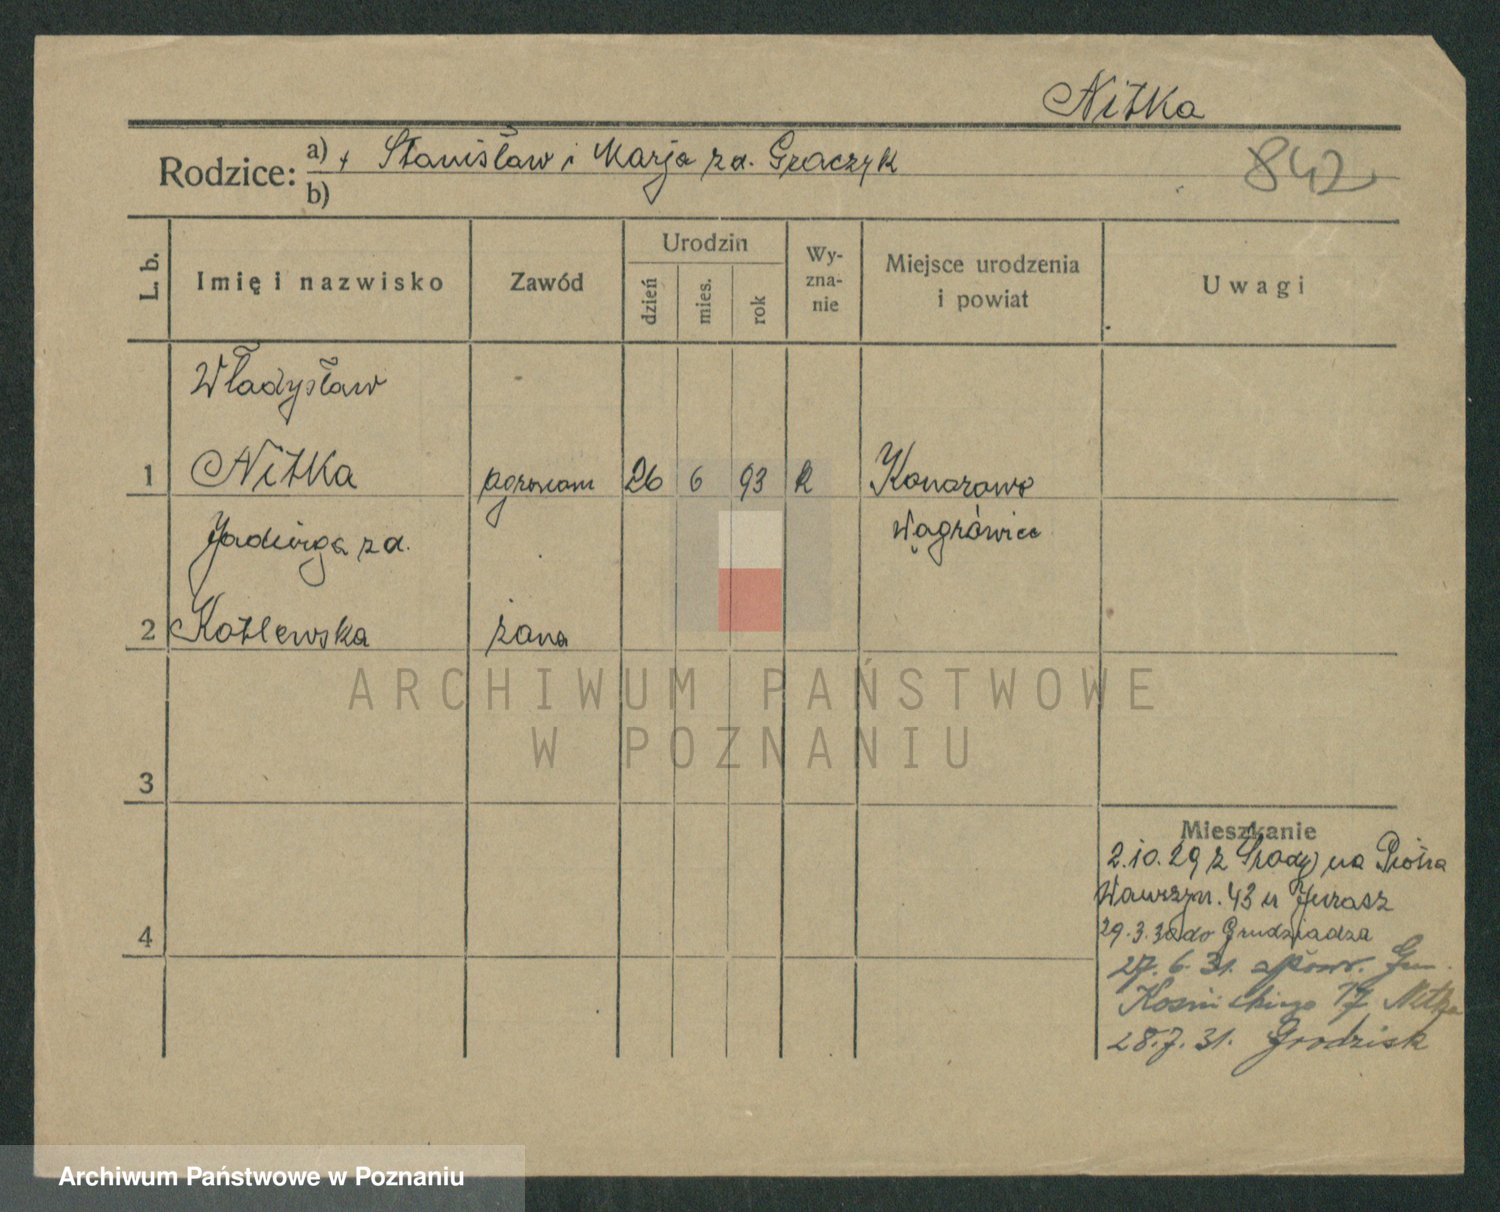 Nitka
Rodzice: a) + Stanisław i Marja zd. Graczyk
b)
842
L. b.
Imię i nazwisko
Zawód
Urodzin
dzień
mies.
rok
Wy-
zna-
nie
Miejsce urodzenia
i powiat
Uwagi
Władysław
1 Nitka agronom 26 6 93 k Konarowo
Jadwiga zd. Wągrówiec
2 Kotlewska żona
ARCHIWUM PAŃSTWOWE
W POZNANIU
3
Mieszkanie
2.10.29 z Środy na Piotra
Wawrzyn. 43 u Jurasz
4
29.3.30 do Grudziądza
27.6.31.
17 Nitka
28.7.31. Grodzisk
Archiwum Państwowe w Poznaniu